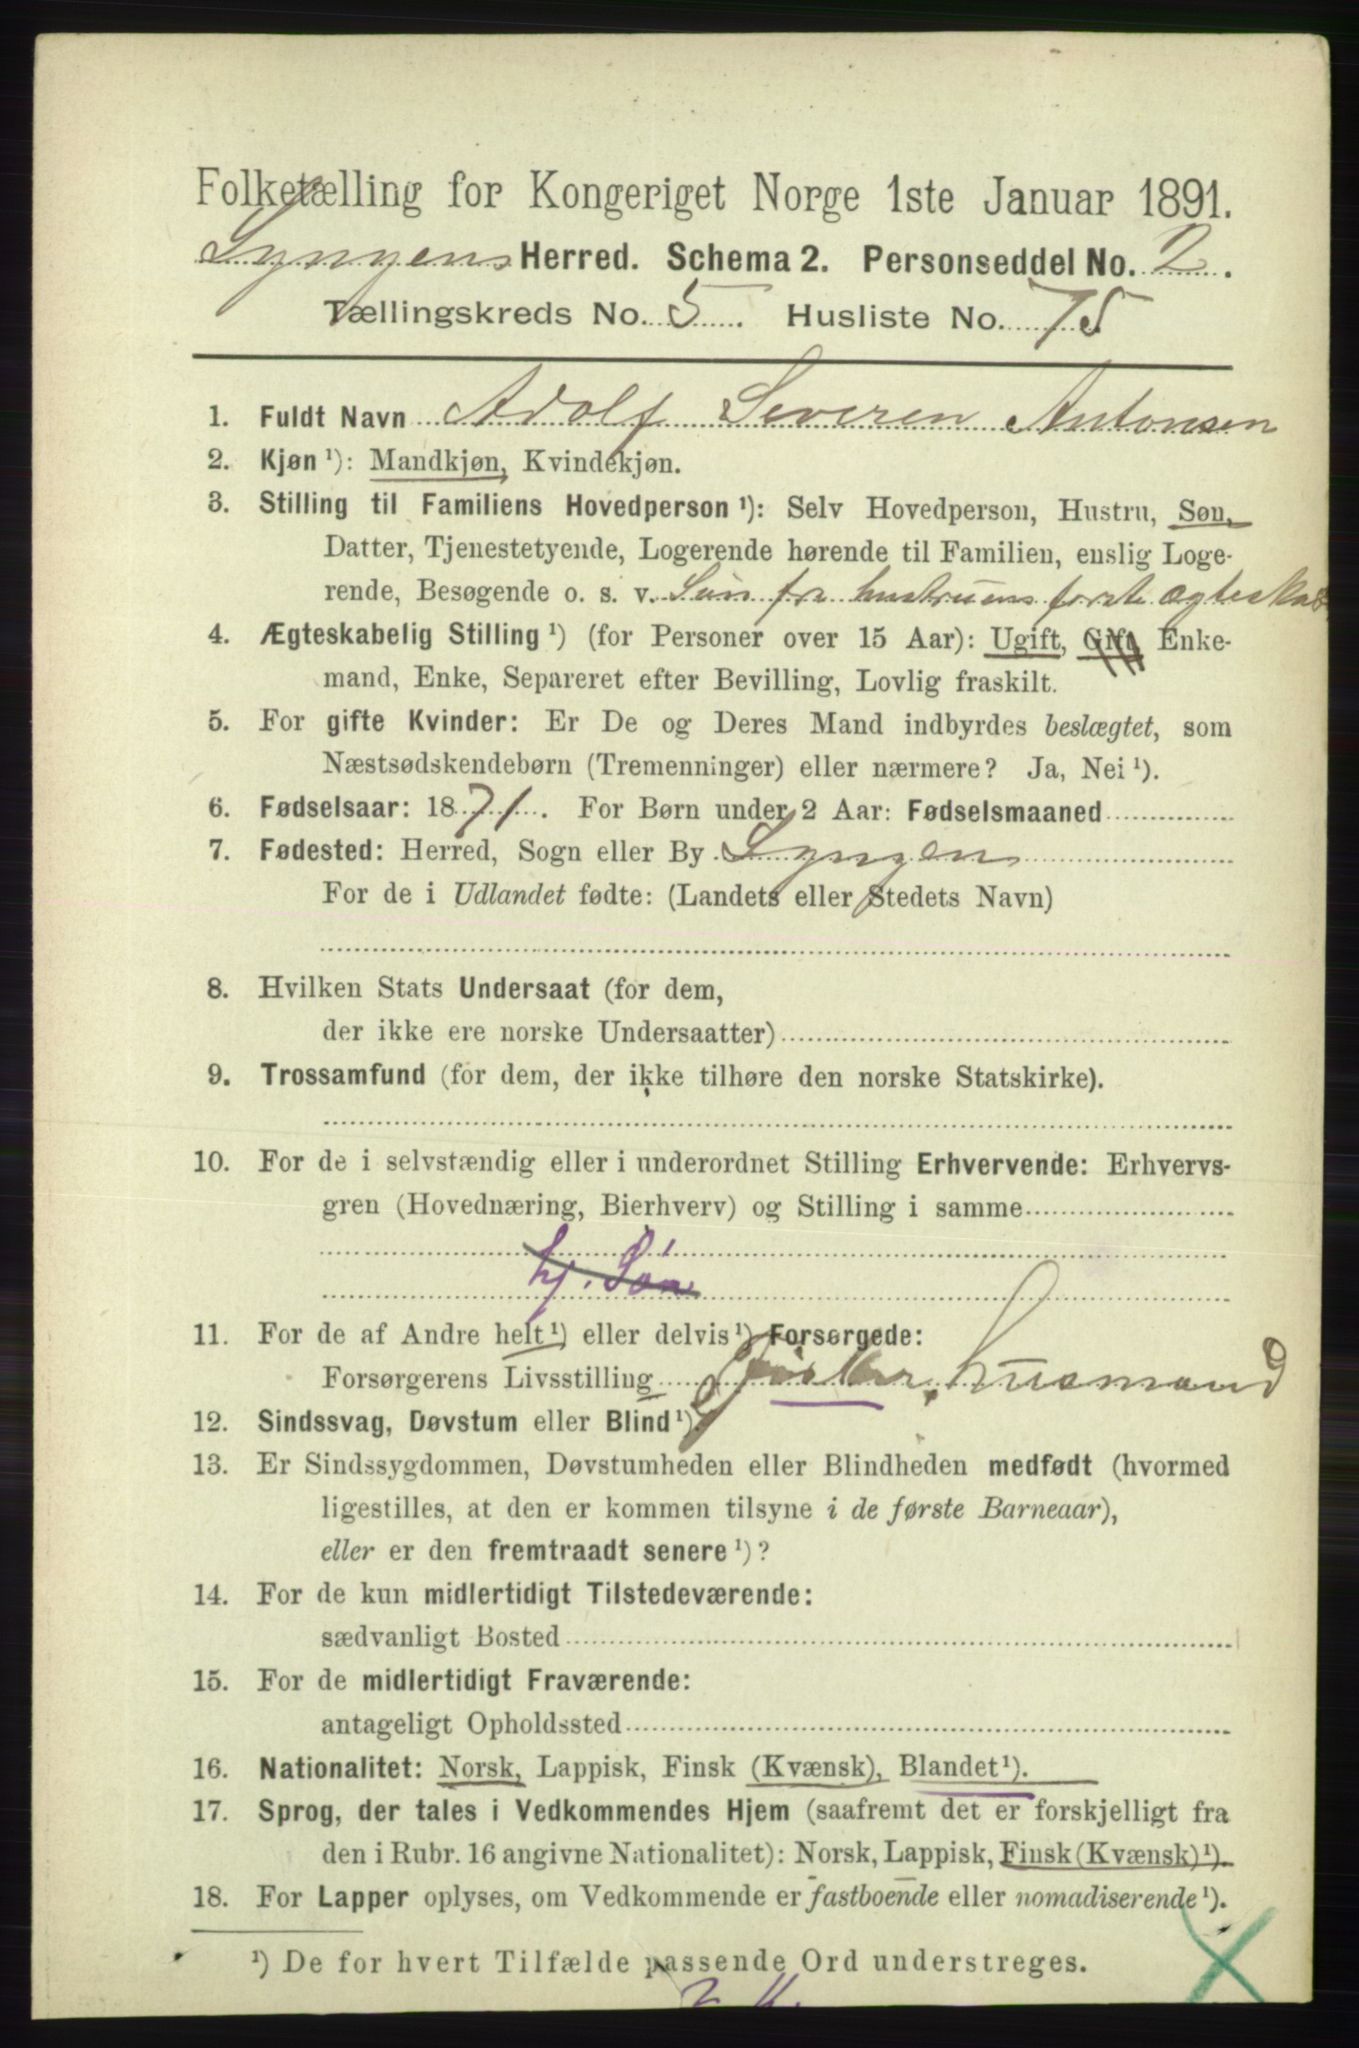 Folketælling for Kongeriget Norge 1ste Januar 1891.
Lyngens Herred. Schema 2. Personseddel No. 2.
Tællingskreds No. 5. Husliste No. 75
1. Fuldt Navn Adolf Severen Antonsen
2. Kjøn ¹): Mandkjøn, Kvindekjøn.
3. Stilling til Familiens Hovedperson ¹): Selv Hovedperson, Hustru, Søn,
Datter, Tjenestetyende, Logerende hørende til Familien, enslig Loge-
rende, Besøgende o. s. v. Søn fra hustruens første ægteskab
4. Ægteskabelig Stilling ¹) (for Personer over 15 Aar): Ugift, Gift, Enke-
mand, Enke, Separeret efter Bevilling, Lovlig fraskilt.
5. For gifte Kvinder: Er De og Deres Mand indbyrdes beslægtet, som
Næstsødskendebørn (Tremenninger) eller nærmere? Ja, Nei ¹).
6. Fødselsaar: 1871. For Børn under 2 Aar: Fødselsmaaned
7. Fødested: Herred, Sogn eller By Lyngen
For de i Udlandet fødte: (Landets eller Stedets Navn)
8. Hvilken Stats Undersaat (for dem,
der ikke ere norske Undersaatter)
9. Trossamfund (for dem, der ikke tilhøre den norske Statskirke).
10. For de i selvstændig eller i underordnet Stilling Erhvervende: Erhvervs-
gren (Hovednæring, Bierhverv) og Stilling i samme
hj. Søn
11. For de af Andre helt ¹) eller delvis ¹) Forsørgede:
Forsørgerens Livsstilling Fisker, husmand
12. Sindssvag, Døvstum eller Blind ¹).
13. Er Sindssygdommen, Døvstumheden eller Blindheden medfødt (hvormed
ligestilles, at den er kommen tilsyne i de første Barneaar),
eller er den fremtraadt senere ¹)?
14. For de kun midlertidigt Tilstedeværende:
sædvanligt Bosted
15. For de midlertidigt Fraværende:
antageligt Opholdssted
16. Nationalitet: Norsk, Lappisk, Finsk (Kvænsk), Blandet ¹).
17. Sprog, der tales i Vedkommendes Hjem (saafremt det er forskjelligt fra
den i Rubr. 16 angivne Nationalitet): Norsk, Lappisk, Finsk (Kvænsk) ¹).
18. For Lapper oplyses, om Vedkommende er fastboende eller nomadiserende ¹).
¹) De for hvert Tilfælde passende Ord understreges.